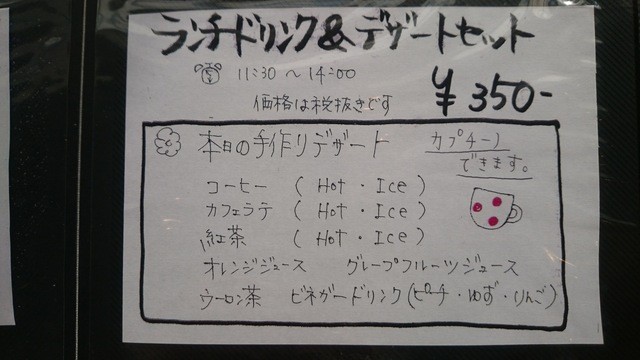 ランチドリンク&デザートセット
11:30 〜 14:00
¥350-
価格は税抜きです
本日の手作りデザート
カプチーノ
できます。
コーヒー ( Hot・Ice )
カフェラテ ( Hot・Ice )
紅茶 ( Hot・Ice )
オレンジジュース グレープフルーツジュース
ウーロン茶 ビネガードリンク(ピーチ・ゆず・りんご)